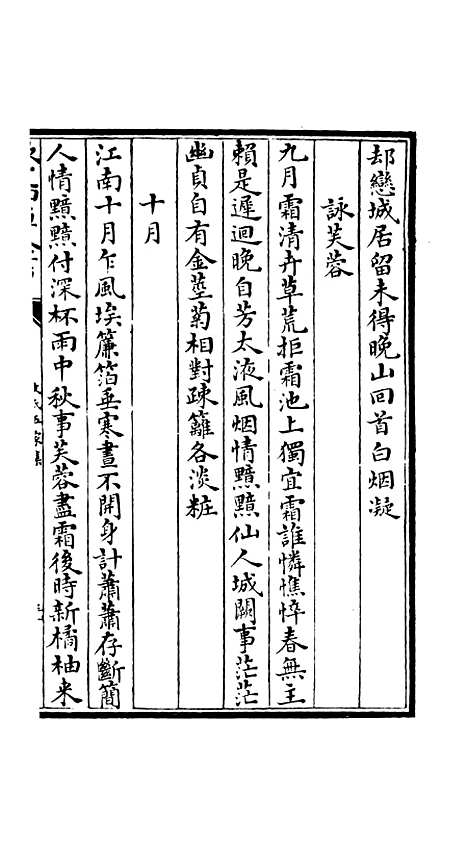 却戀城居留未得晚山回首白烟凝
詠芙蓉
九月霜清卉草荒拒霜池上獨宜霜誰憐憔悴春無主
賴是遲迴晚自芳太液風烟情黯黯仙人城闕事茫茫
幽貞自有金莖菊相對疎籬各淡粧
十月
江南十月乍風埃簾箔垂寒晝不開身計蕭蕭存斷簡
人情黯黯付深杯雨中秋事芙蓉盡霜後時新橘柚来
文氏五家集